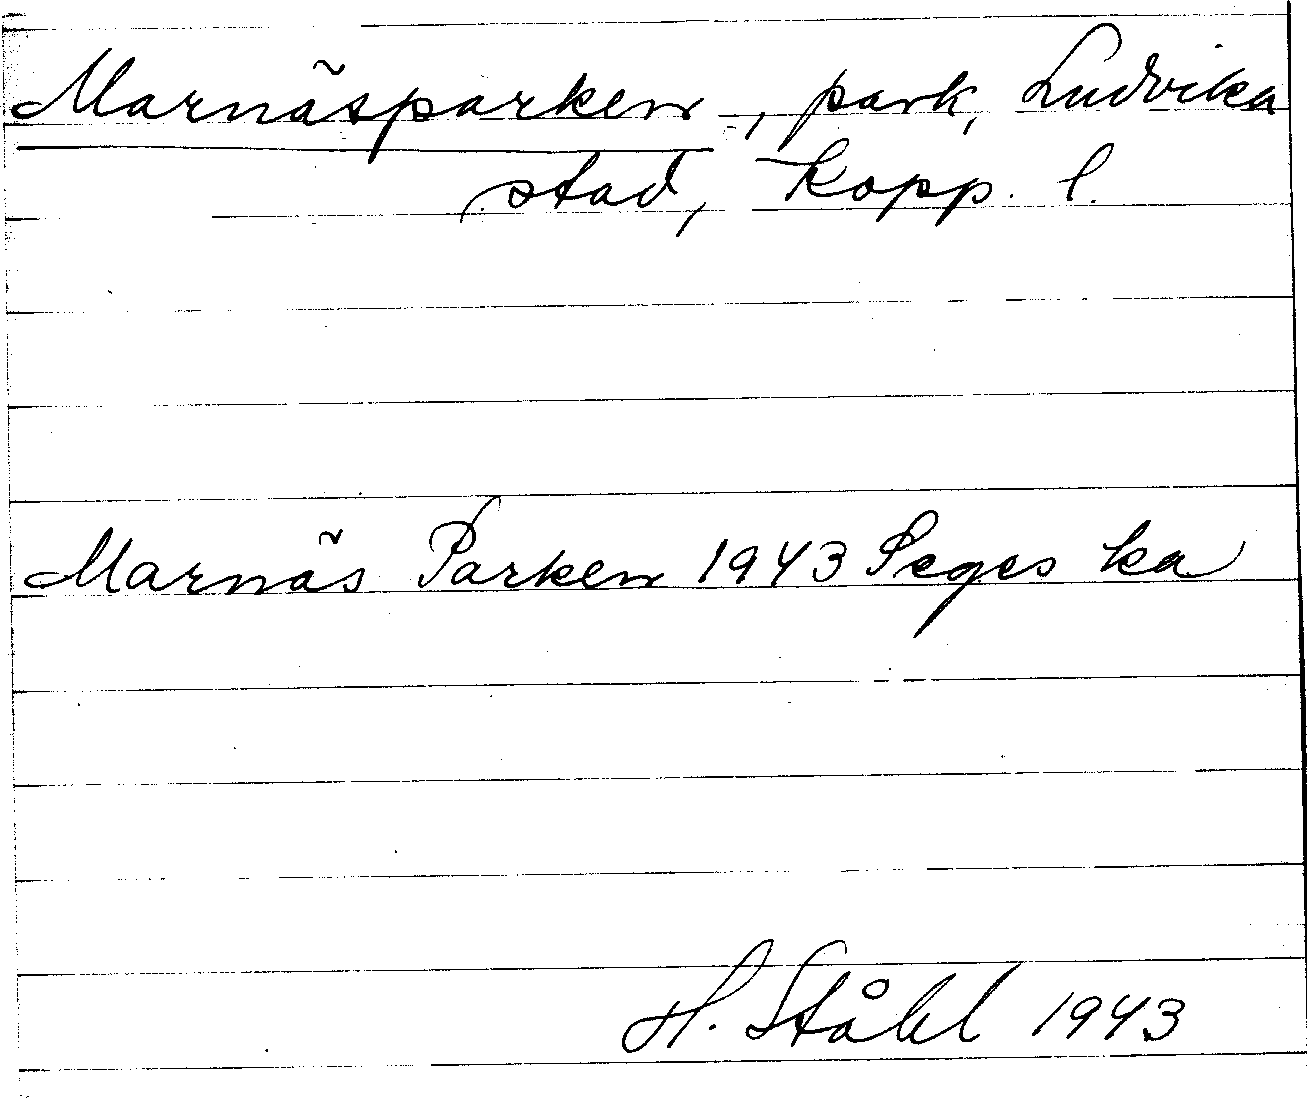 Marnäsparken, park, Ludvika
stad, Kopp. l.
Marnäs Parken 1943 Seges ka
H. Ståhl 1943